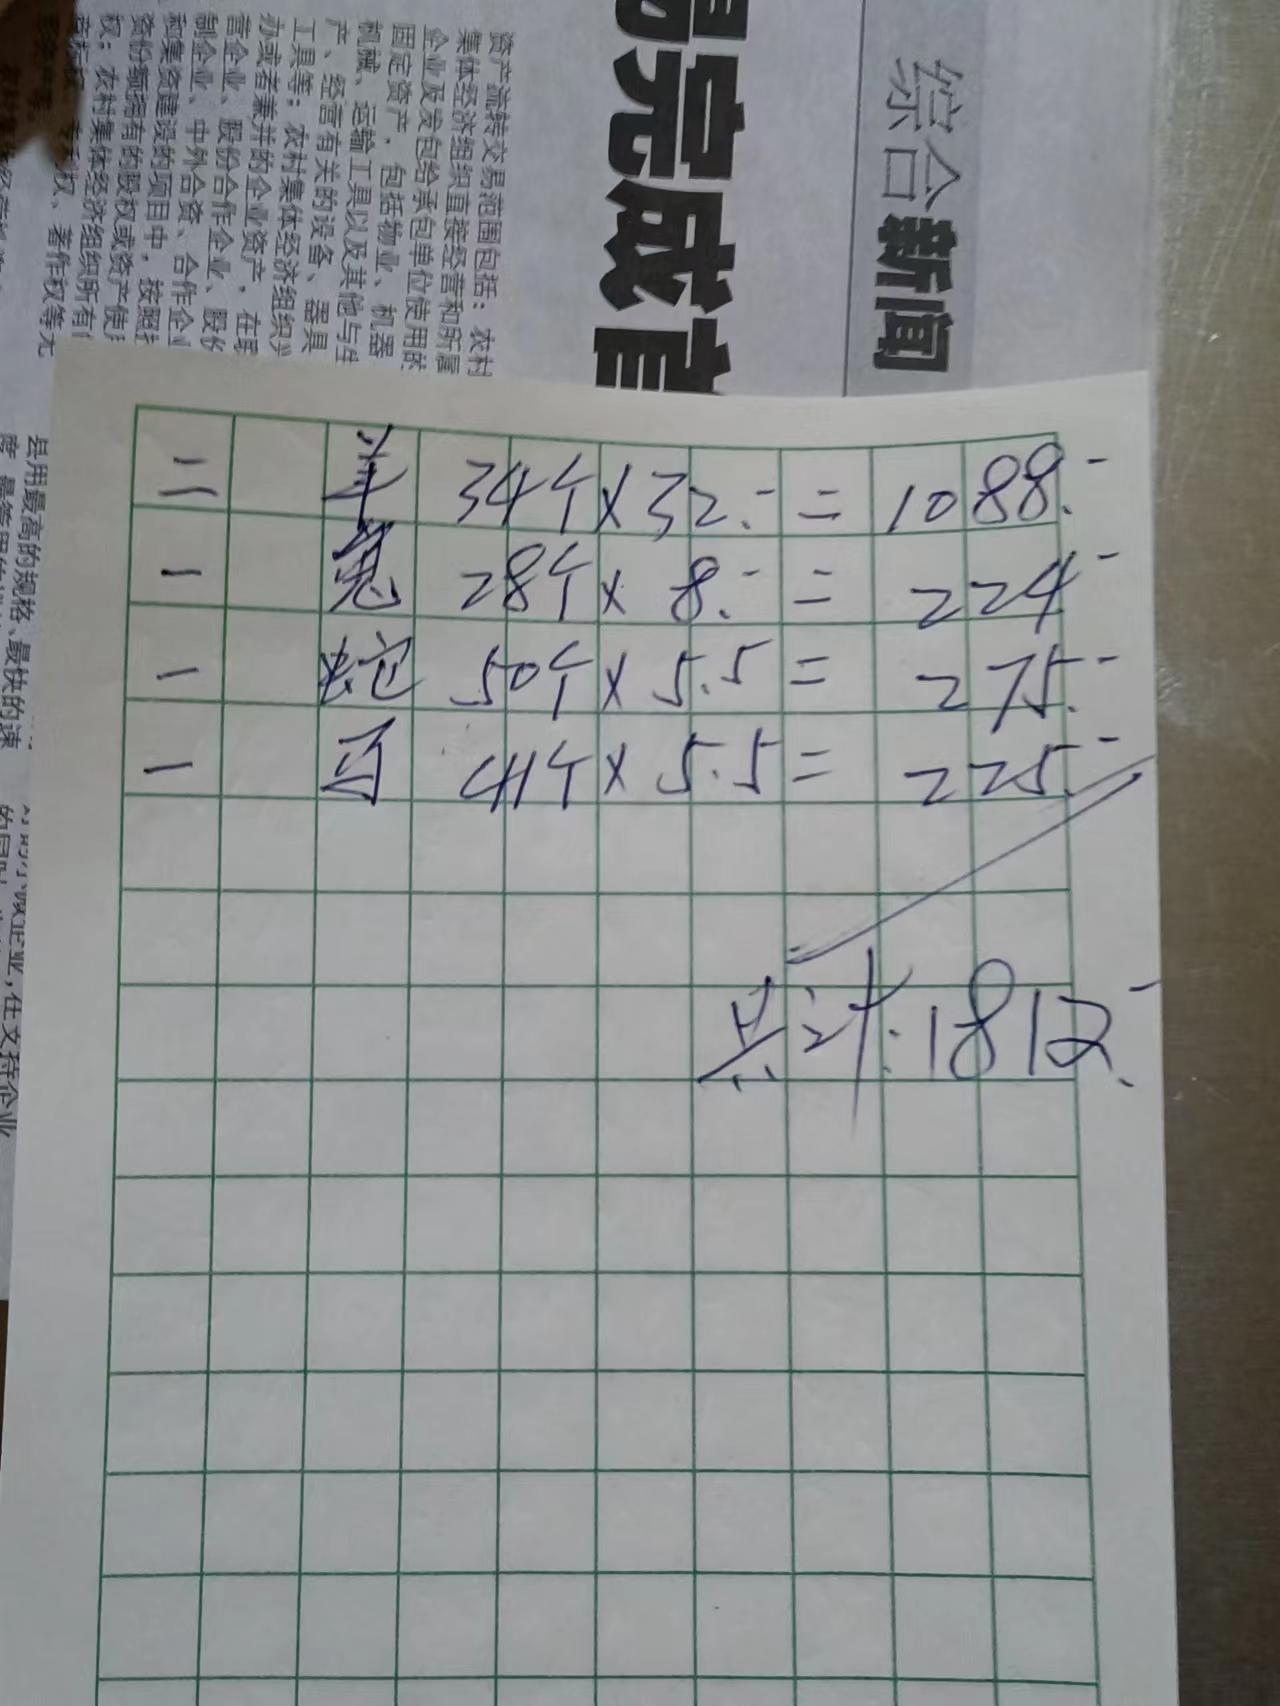 综合新闻
易完成官
资产流转交易范围包括：农村
集体经济组织直接经营和所属
企业及发包给承包单位使用的
固定资产，包括物业、机器
机械、运输工具以及其他与生
产、经营有关的设备、器具
工具等；农村集体经济组织兴
办或者兼并的企业资产，在联
营企业、股份合作企业、股份
制企业、中外合资、合作企业
和集资建设的项目中，按照
资份额拥有的股权或资产使
权；农村集体经济组织所有
权、著作权等无
是用最高的规格、最快的速
企业，在支持企业
二 羊 34个×32.- = 1088.-
一 兔 28个×8.- = 224-
一 蛇 50个×5.5 = 275.-
一 马 41个×5.5 = 225.-
共计:1812.-